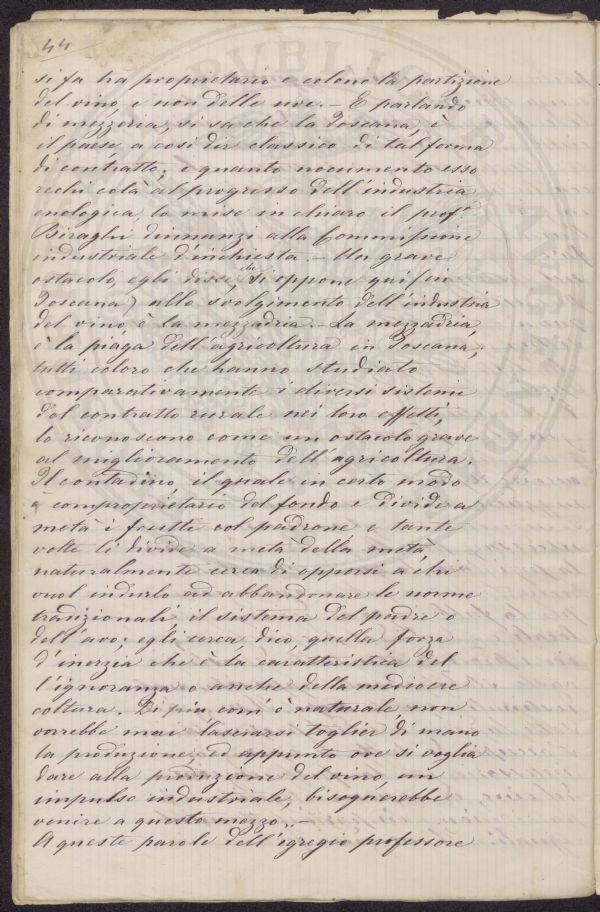 44
si fa tra proprietario e colono la partizione
del vino, e non delle uve. - E parlando
di mezzeria, si sa che la Toscana, è
il paese, a così dir classico di tal forma
di contratto; e quanto nocumento esso
rechi colà al progresso dell'industria
enologica, lo mise in chiaro il prof.r
Biraghi dinnanzi alla Commissione
industriale d'inchiesta. - Un grave
ostacolo, egli disse, che si oppone qui (in
Toscana) allo svolgimento dell'industria
del vino, è la mezzadria. - La mezzadria
è la piaga dell'agricoltura in Toscana;
tutti coloro che hanno studiato
comparativamente i diversi sistemi
del contratto rurale nei loro effetti,
lo riconoscono come un ostacolo grave
al miglioramento dell'agricoltura.
Il contadino il quale in certo modo
è comproprietario del fondo e divide a
metà i frutti col padrone, e tante
volte li divide a metà della metà,
naturalmente cerca di opporsi a chi
vuol indurlo ad abbandonare le norme
tradizionali il sistema del padre o
dell'avo; egli cerca, dico, quella forza
d'inerzia che è la caratteristica del
l'ignoranza o anche della mediocre
coltura. Di più com'è naturale non
vorrebbe mai lasciarsi toglier di mano
la produzione, ed appunto ove si voglia
dare alla produzione del vino, un
impulso industriale, bisognerebbe
venire a questo mezzo. -
A queste parole dell'egregio professore